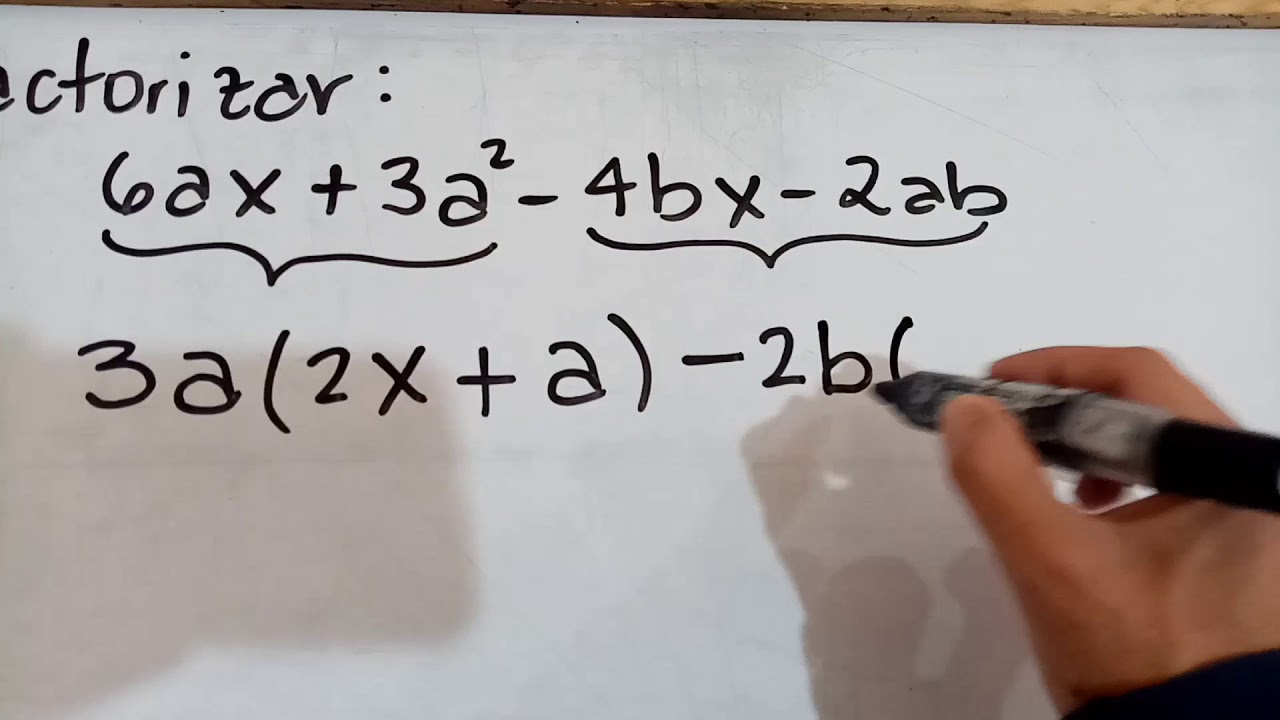 actorizar:
6ax + 3a² - 4bx - 2ab
3a(2x + a) - 2b(